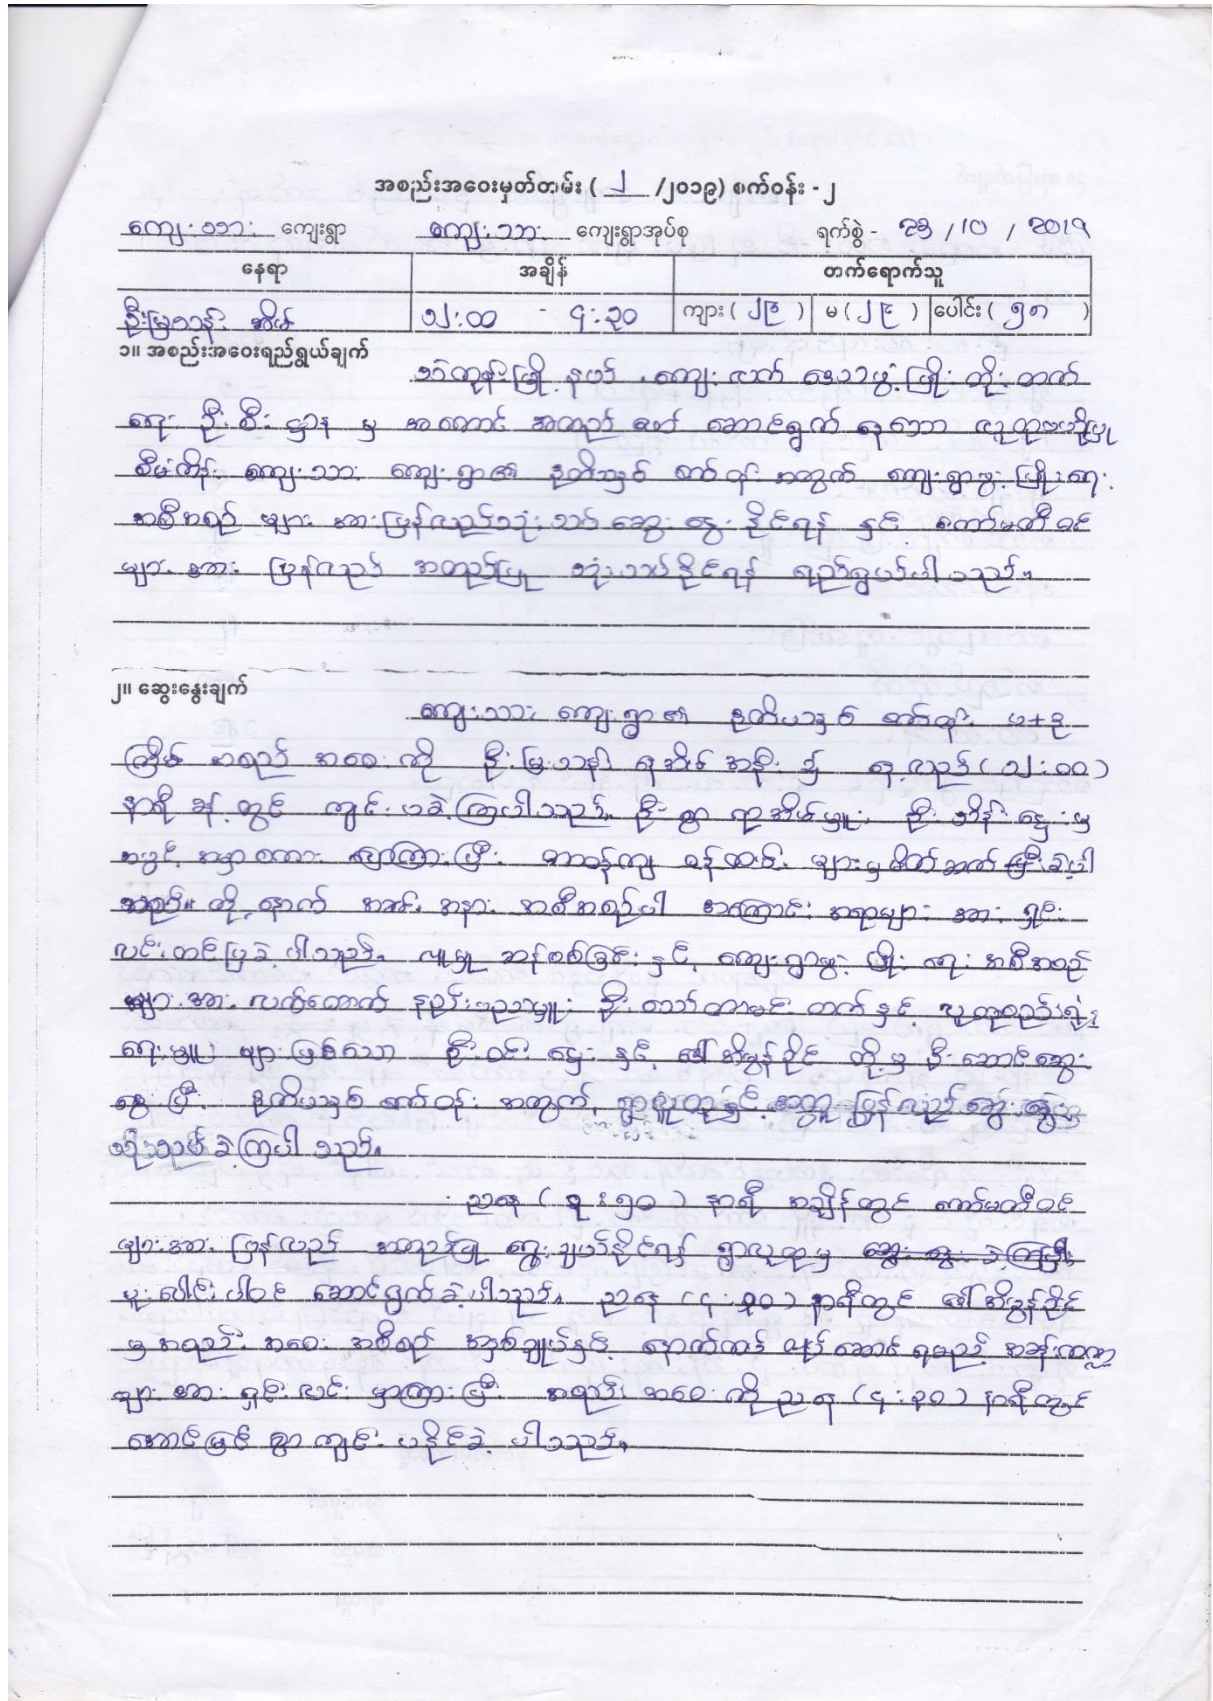 အစည်းအဝေးမှတ်တမ်း ( ၂ /၂၀၁၉) စက်ဝန်း - ၂
ကျေးသား ကျေးရွာ ကျေးသား ကျေးရွာအုပ်စု ရက်စွဲ - / ၁၀ / ၂၀၁၉
နေရာ အချိန် တက်ရောက်သူ
ဦးမြသန်း အိမ် ၁၂:၀၀ - ၄:၃၀ ကျား ( ၂၉ ) မ ( ၂၉ ) ပေါင်း ( ၅၈ )
၁။ အစည်းအဝေးရည်ရွယ်ချက်
သဲကုန်းမြို့နယ် ၊ ကျေးလက် ဒေသဖွံ့ဖြိုး တိုးတက်
ရေး ဦးစီး ဌာန မှ အကောင် အထည် ဖော် ဆောင်ရွက် နေသော လူထုဗဟိုပြု
စီမံကိန်း ကျေးသား ကျေးရွာ၏ ဒုတိယနှစ် စက်ဝန်း အတွက် ကျေးရွာဖွံ့ဖြိုးရေး
အစီအစဉ် များ အား ပြန်လည်သုံးသပ် ဆွေး နွေး နိုင်ရန် နှင့် ကော်မတီဝင်
များ အား ပြန်လည် အတည်ပြု သုံးသပ်နိုင်ရန် ရည်ရွယ်ပါသည်။
၂။ ဆွေးနွေးချက်
ကျေးသား ကျေးရွာ၏ ဒုတိယနှစ် စက်ဝန်း
ကြိမ် အစည်း အဝေး ကို ဦးမြသန်း နေအိမ် ၌ နေ့လည် (၁၂:၀၀)
နာရီ ခန့် တွင် ကျင်းပခဲ့ကြပါသည်။ ဦးစွာ ရာအိမ်မှူး ဦးသိန်းဌေး မှ
အဖွင့် အမှာစကား ပြောကြားပြီး တာဝန်ကျ ဝန်ထမ်း များမှ မိတ်ဆက် ပြီးခဲ့ပါ
သည်။ ထို့နောက် အခမ်း အနား အစီအစဉ်ပါ အကြောင်း အရာများ အား ရှင်း
လင်းတင်ပြခဲ့ပါသည်။ လူမှု ဆန်းစစ်ခြင်း နှင့် ကျေးရွာဖွံ့ ဖြိုး ရေး အစီအစဉ်
များ အား လက်ထောက် နည်းပညာမှူး ဦးသော်တာမင်း ထက် နှင့် လူထုစည်းရုံး
ရေးမှူး များဖြစ်သော ဦးဝင်း ဌေး နှင့် ဒေါ်အိမွန်ခိုင် တို့မှ ဦးဆောင်ဆွေး
နွေးပြီး ဒုတိယနှစ် စက်ဝန်း အတွက် ရွာလူထုနှင့် အတူ ပြန်လည် ဆွေး နွေး
သုံးသပ် ခဲ့ကြပါသည်။
ညနေ ( :၅၀ ) နာရီ အချိန်တွင် ကော်မတီဝင်
များအား ပြန်လည် အတည်ပြု ရွေးချယ်နိုင်ရန် ရွာလူထုမှ ဆွေး နွေး ခဲ့ကြပြီး
ပူးပေါင်းပါဝင် ဆောင်ရွက်ခဲ့ပါသည်။ ညနေ (၄: ) နာရီတွင် ဒေါ်အိမွန်ခိုင်
မှ အစည်း အဝေး အစီရင် အနှစ်ချုပ်နှင့် နောက်ထပ် လုပ်ဆောင် ရမည့် အခန်းကဏ္ဍ
များ အား ရှင်းလင်း မှာကြားပြီး အစည်း အဝေးကို ညနေ (၄:၃၀) နာရီတွင်
အောင်မြင်စွာ ကျင်းပနိုင်ခဲ့ပါသည်။